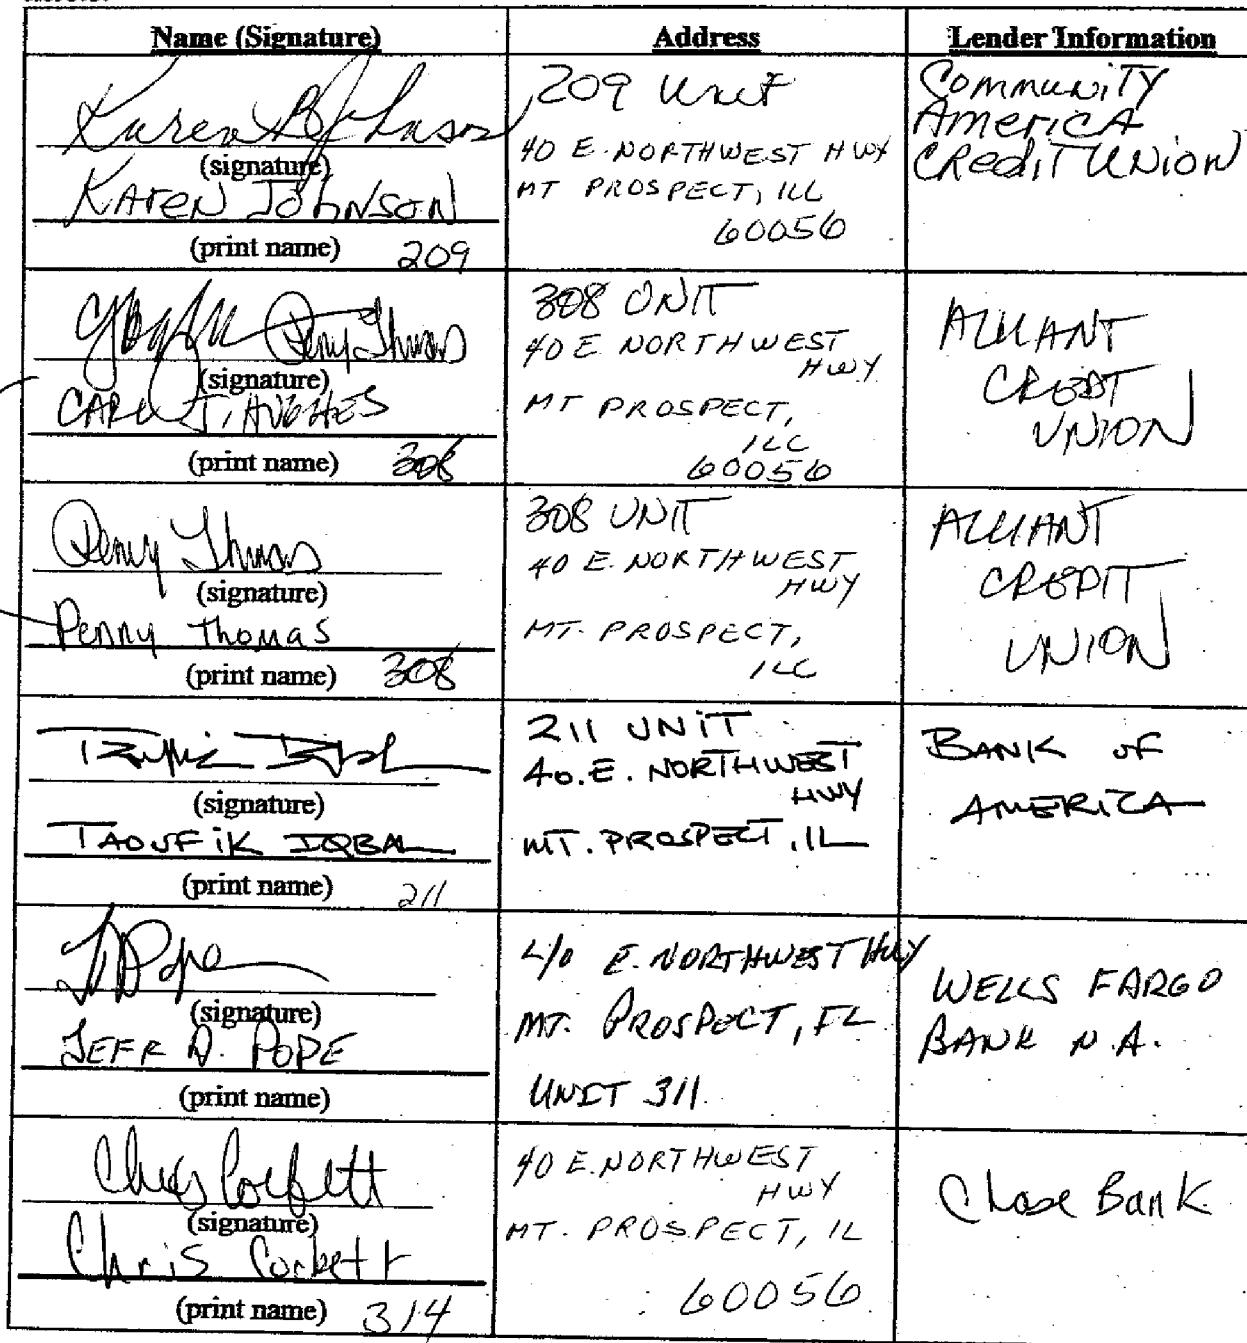 Name (Signature) Address Lender Information
Karen B Johnson
(signature)
KAreN JOhNSON
(print name) 209
209 Unit
40 E. NORTHWEST HWY
MT PROSPECT, ILL
60056
CommuniTY
AmericA
CRediT UNiON
Penny Thomas
(signature)
CARL J. HUGHES
(print name) 308
308 UNIT
40 E NORTHWEST
HWY
MT PROSPECT,
ILL
60056
ALLIANT
CREDIT
UNION
Penny Thomas
(signature)
Penny Thomas
(print name) 308
308 UNIT
40 E. NORTHWEST
HWY
MT. PROSPECT,
ILL
ALLIANT
CREDIT
UNION
(signature)
TAOUFiK IQBAL
(print name) 211
211 UNiT
40.E. NORTHWEST
HWY
MT. PROSPECT, IL
BANK oF
AMERICA
(signature)
JEFF D. POPE
(print name)
40 E. NORTHWEST HWY
MT. PROSPECT, IL
UNIT 311
WELLS FARGO
BANK N.A.
Chris Corbett
(signature)
Chris Corbett
(print name) 314
40 E. NORTHWEST
HWY
MT. PROSPECT, IL
60056
Chase Bank